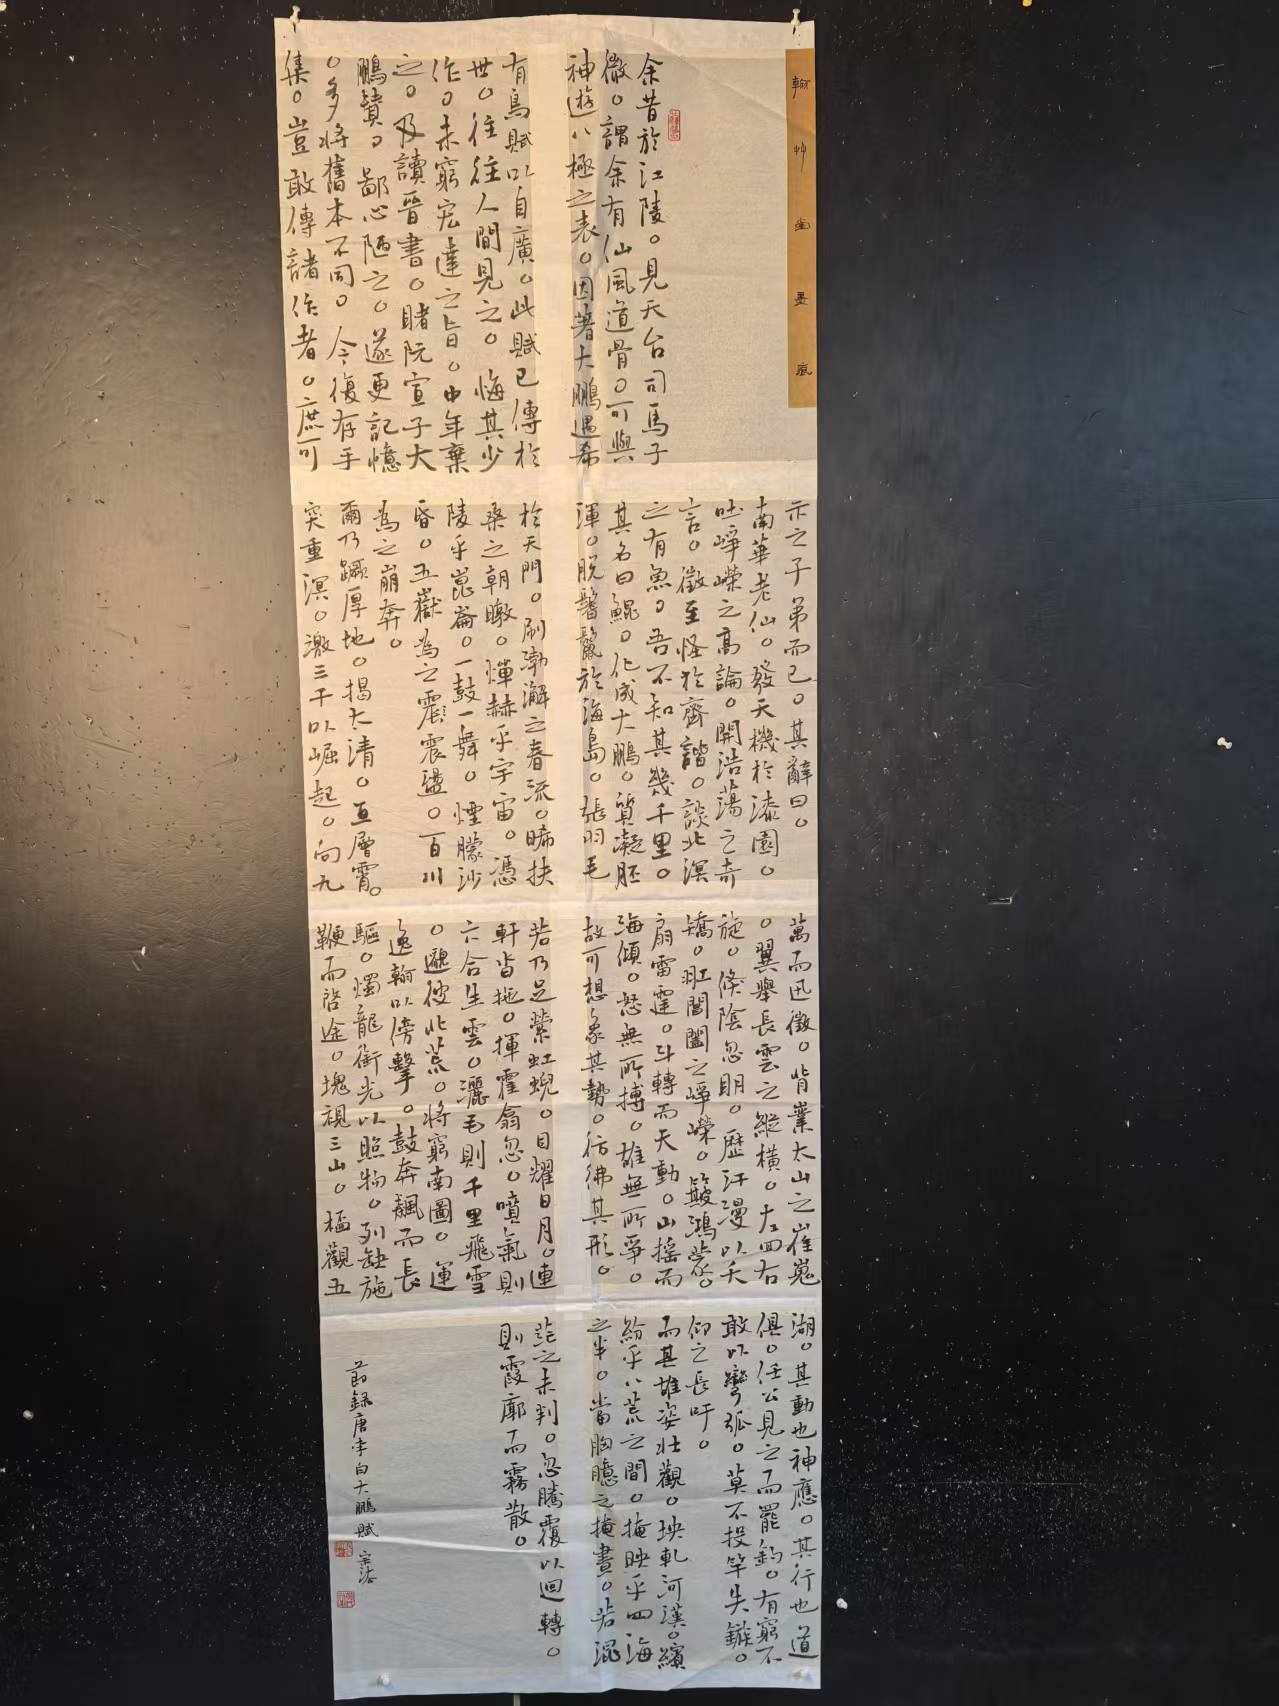 翰艸堂墨痕
余昔於江陵。見天台司馬子
微。謂余有仙風道骨。可與
神遊八極之表。因著大鵬遇希
有鳥賦以自廣。此賦已傳於
世。往往人間見之。悔其少
作。未窮宏達之旨。中年棄
之。及讀晉書。睹阮宣子大
鵬贊。鄙心陋之。遂更記憶
。多將舊本不同。今復存手
集。豈敢傳諸作者。庶可
示之子弟而已。其辭曰。
南華老仙。發天機於漆園。
吐崢嶸之高論。開浩蕩之奇
言。徵至怪於齊諧。談北溟
之有魚。吾不知其幾千里。
其名曰鯤。化成大鵬。質凝胚
渾。脫鬐鬣於海島。張羽毛
於天門。刷渤澥之春流。晞扶
桑之朝暾。燀赫乎宇宙。憑
陵乎崑崙。一鼓一舞。煙朦沙
昏。五嶽為之震盪。百川
為之崩奔。
爾乃蹶厚地。揭太清。亘層霄。
突重溟。激三千以崛起。向九
萬而迅徵。背嶪太山之崔嵬
。翼舉長雲之縱橫。左回右
旋。倏陰忽明。歷汗漫以夭
矯。羾閶闔之崢嶸。簸鴻蒙。
扇雷霆。斗轉而天動。山搖而
海傾。怒無所搏。雄無所爭。
故可想象其勢。彷彿其形。
若乃足縈虹蜺。目耀日月。連
軒沓拖。揮霍翕忽。噴氣則
六合生雲。灑毛則千里飛雪
。邈彼北荒。將窮南圖。運
逸翰以傍擊。鼓奔飆而長
驅。燭龍銜光以照物。列缺施
鞭而啓途。塊視三山。杯觀五
湖。其動也神應。其行也道
俱。任公見之而罷釣。有窮不
敢以彎弧。莫不投竿失鏃。
仰之長吁。
而其雄姿壯觀。坱軋河漢。繽
紛乎八荒之間。掩映乎四海
之半。當胸臆之掩晝。若混
茫之未判。忽騰覆以迴轉。
則霞廓而霧散。
節錄唐李白大鵬賦